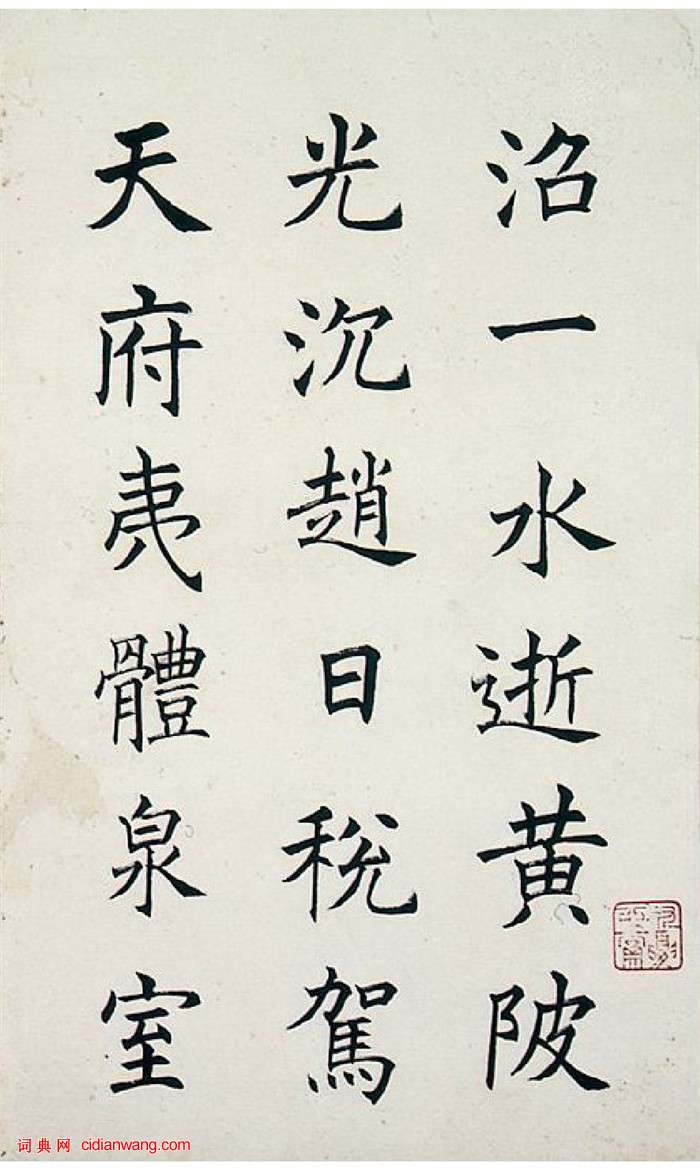 沼一水逝黄陂
光沉趙日税駕
天府夷體泉室
词典网 cidianwang.com